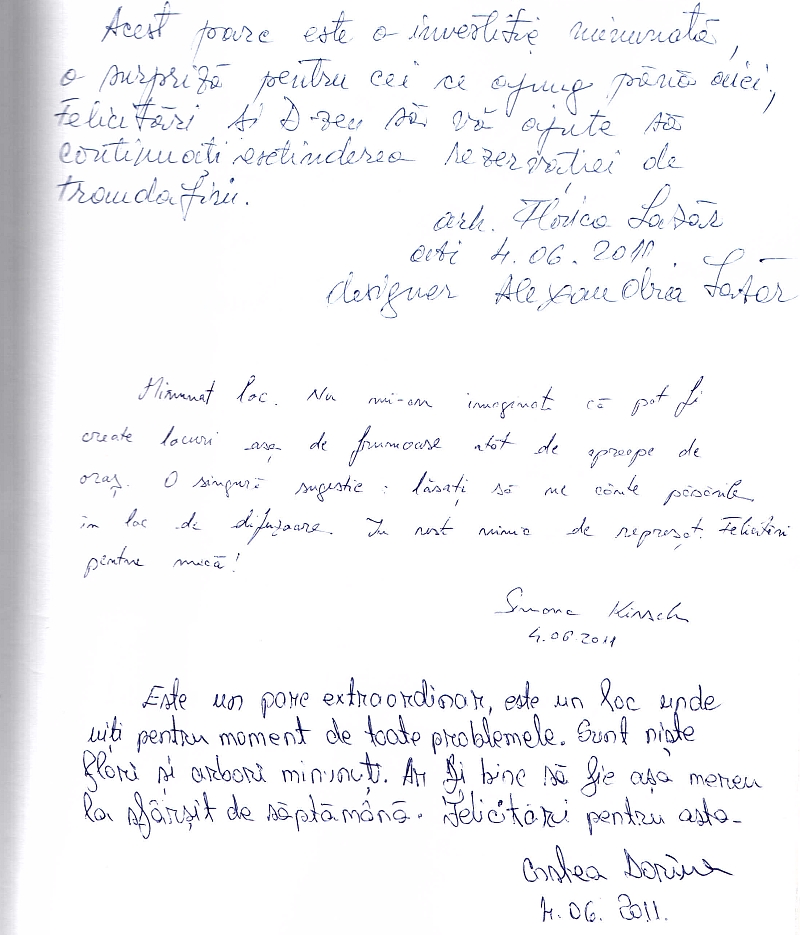 Acest parc este o investiție minunată,
o surpriză pentru cei ce ajung până aici,
Felicitări și D-zeu să vă ajute să
continuati extinderea rezervației de
trandafirii.
arh. Florica Lazăr
azi 4.06.2011.
designer Alexandra Lazăr
Minunat loc. Nu mi-am imaginat că pot fi
create locuri așa de frumoase atât de aproape de
oraș. O singură sugestie: lăsați să ne cânte păsările
în loc de difuzoare. În rest nimic de reproșat. Felicitări
pentru muncă!
Simona Kirsch
4.06.2011
Este un parc extraordinar, este un loc unde
uiți pentru moment de toate problemele. Sunt niște
flori și arbori minunați. Ar fi bine să fie așa mereu
la sfârșit de săptămână. Felicitări pentru asta.
Costea Dorina
4.06.2011.